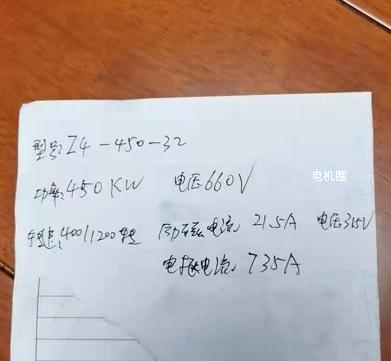 型号: Z4-450-32
功率: 450KW 电压 660V
电机圈
转速: 400/1200转 励磁电流: 21.5A 电压315V
电枢电流: 735A